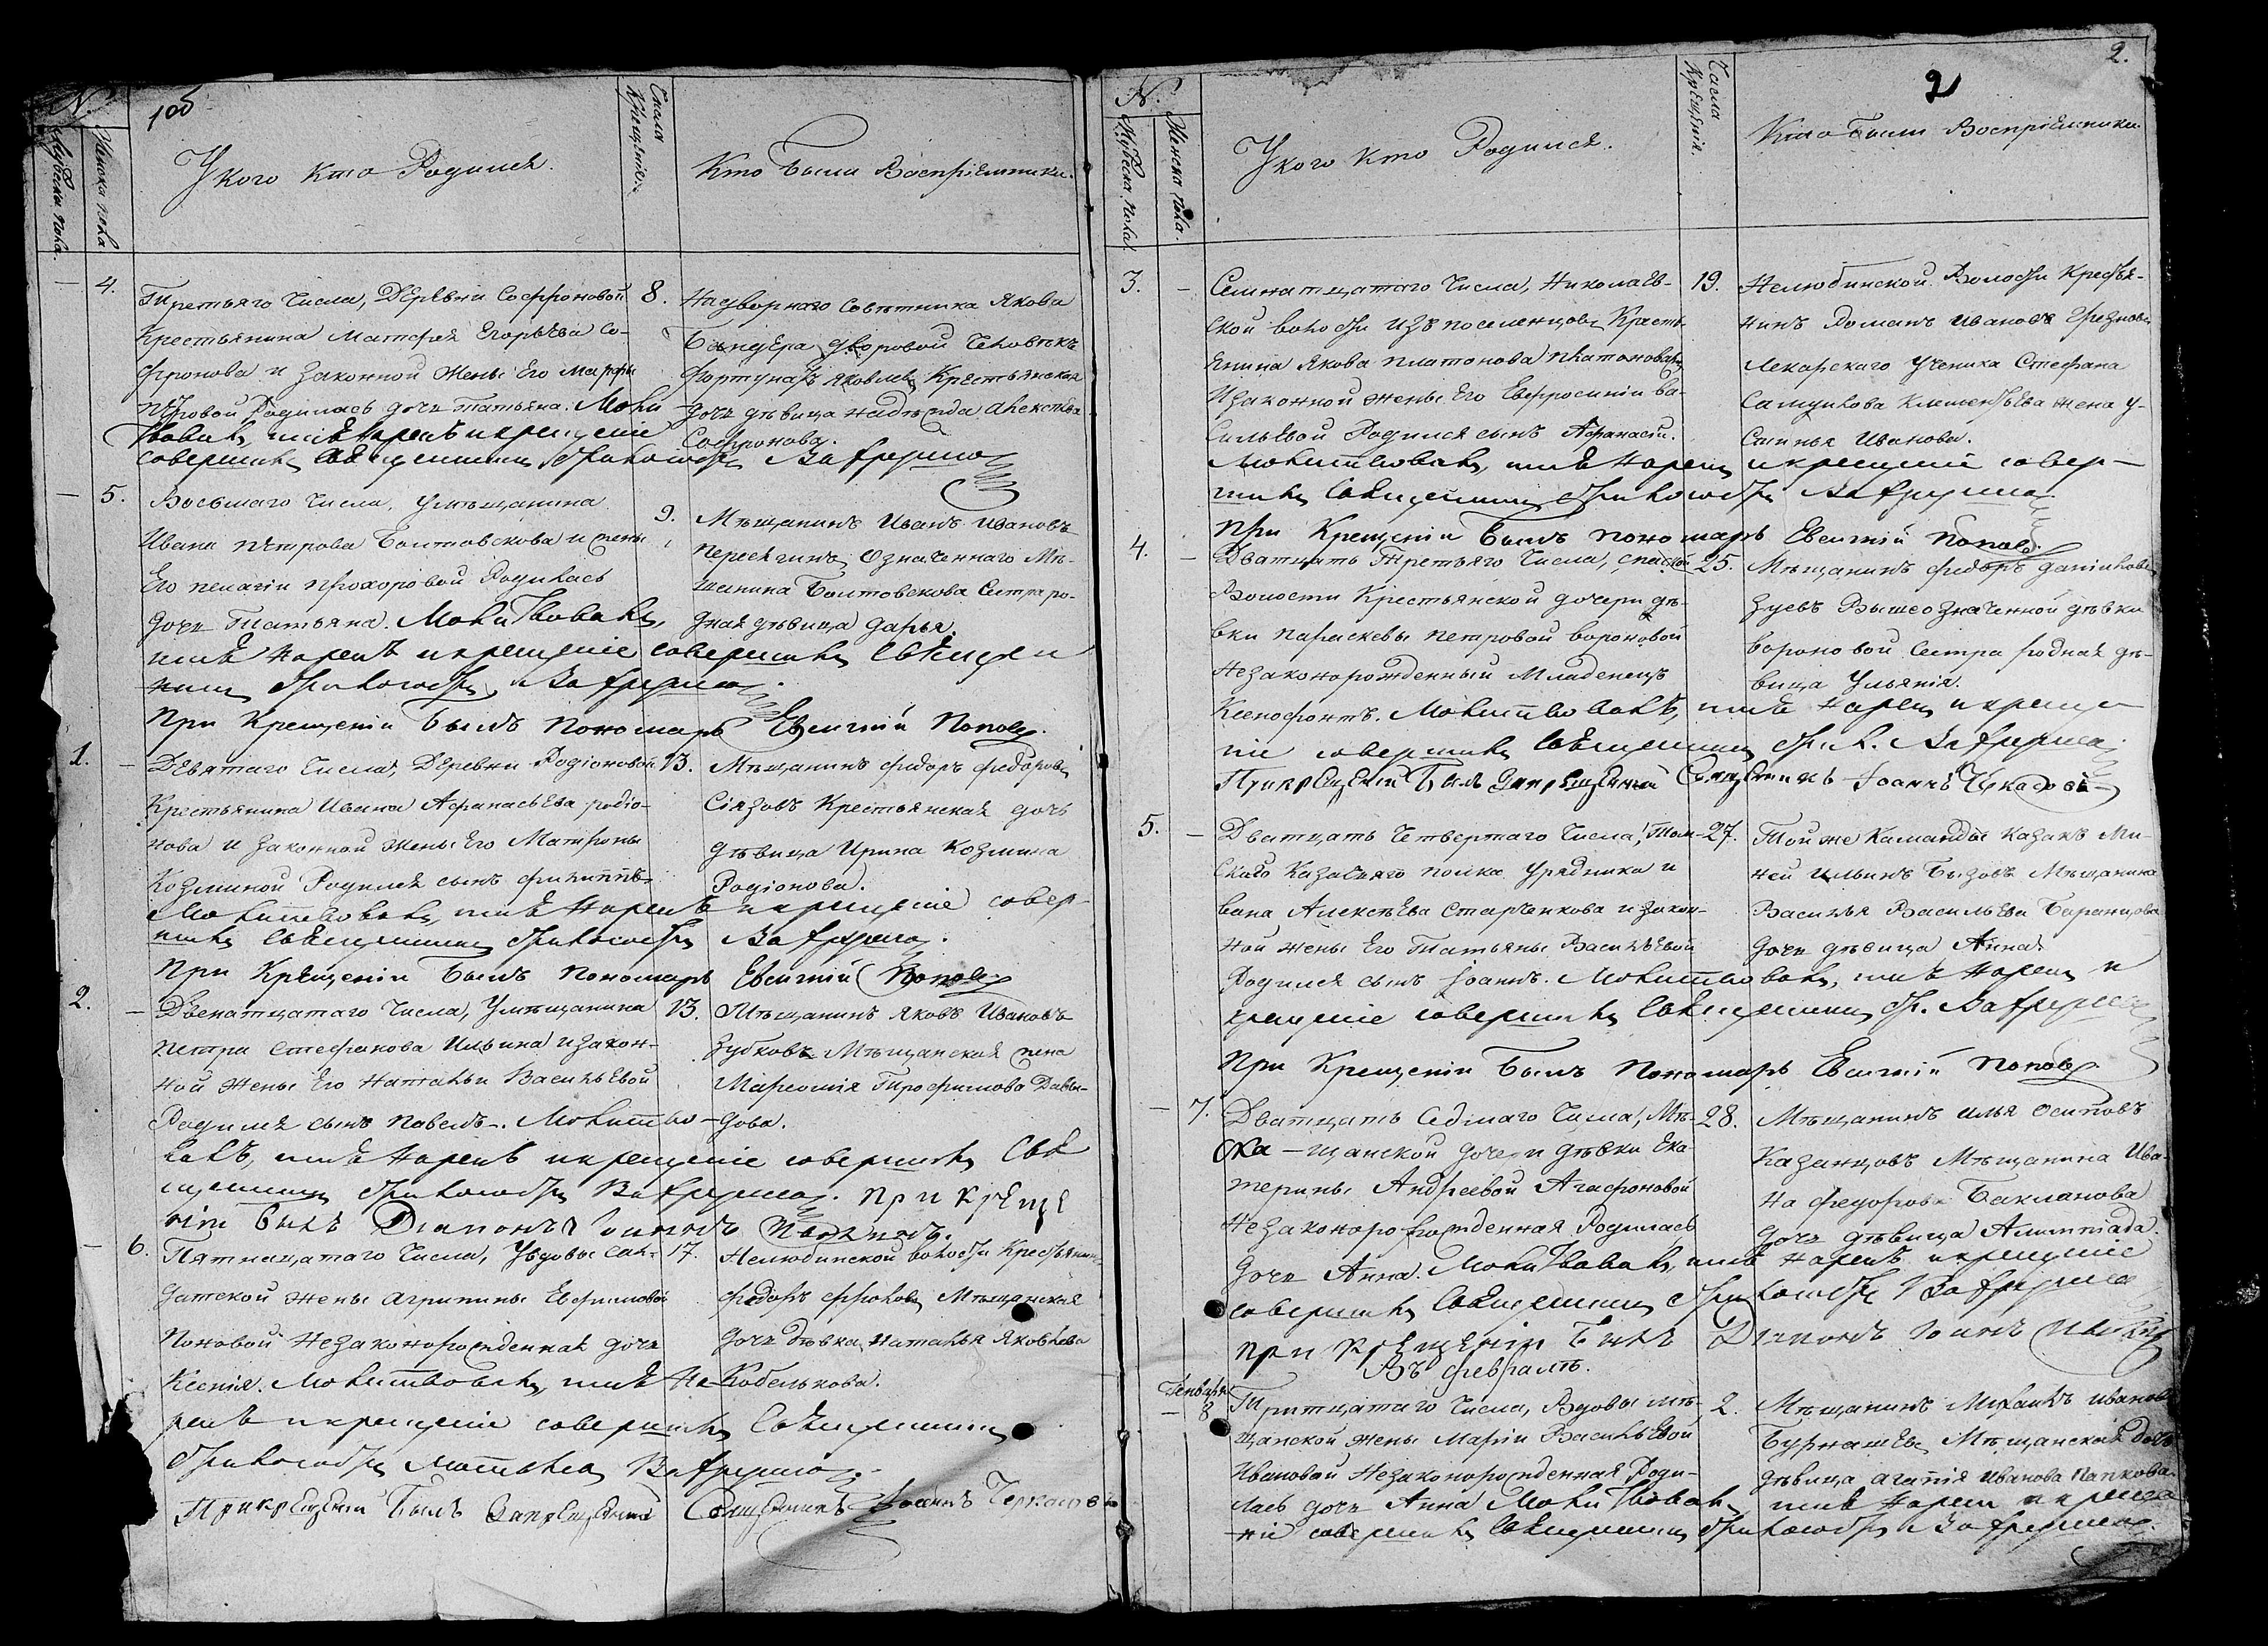 1об
№.
Мужеска пола.
Женска пола
У кого кто Родился.
Числа Крещенія.
Кто были Воспріемники.
— 4.
Третьяго числа, Деревни Софроновой
Крестьянина Матфея Егорьева Со-
фронова и законной жены его Марфы
Петровой Родилась дочь Татьяна. Молитвовалъ, имя нарекъ и крещеніе
совершилъ Священникъ
8.
Надворнаго Совѣтника Якова
дворовой человѣкъ
Фортунатъ Яковлевъ Крестьянская
дочь дѣвица Надежда Алексѣева
Софронова.
— 5.
Восьмаго числа, У мѣщанина
Ивана Петрова Болтовскова и жены
Его Пелагіи Прохоровой Родилась
дочь Татьяна. Молитвовалъ,
имя нарекъ и крещеніе совершилъ Священ
никъ
При Крещеніи былъ пономарь Евгений Поповъ.
9.
Мѣщанинъ Иванъ Ивановъ
Означеннаго Мѣ-
щанина Болтовскова Сестра ро-
дная дѣвица Дарья.
1. —
Девятаго числа, Деревни Родіоновой
Крестьянина Ивана Афанасьева Родіо-
нова и законной жены Его Матроны
Козминой Родился сынъ Филиппъ.
Молитвовалъ, имя нарекъ и крещеніе совер-
шилъ Священникъ
При Крещеніи былъ пономарь Евгений Поповъ
13.
Мѣщанинъ Федоръ Федоровъ
Сіязовъ Крестьянская дочь
дѣвица Ирина Козмина
Родіонова.
2. —
Двенатцатаго числа, У мѣщанина
Петра Стефанова Ильина и закон-
ной жены Его Натальи Васильевой
Родился сынъ Павелъ. Молитво-
валъ, имя нарекъ и крещеніе совершилъ Свя
щенникъ При Креще
ніи былъ Діаконъ Іоаннъ
13.
Мѣщанинъ Яковъ Ивановъ
Зубковъ Мѣщанская жена
Трофимова Давы-
дова.
— 6.
Пятнацатаго числа, У вдовы сол-
датской жены Агрипины Ефимовой
Поповой Незаконорожденная дочь
Ксенія. Молитвовалъ, имя на
рекъ и крещеніе совершилъ Священникъ
При крещеніи былъ Запрещенный Священникъ Іоаннъ
17.
Нелюбинской волости Крестьянинъ
Федоръ Фроловъ Мѣщанская
дочь дѣвка Наталья Яковлева
Кобелькова.
2.
2
№.
Мужеска пола.
Женска пола.
У кого кто Родился.
Числа Крещенія.
Кто были Воспріемники.
3. —
Семнатцатаго числа, Николаев-
ской волости изъ поселенцовъ Кресть-
янина Якова Платонова Платонова
и законной жены Его Евфросиніи Ва-
сильевой Родился сынъ Афанасій.
Молитвовалъ, имя нарекъ и крещеніе совер-
шилъ Священникъ
При Крещеніи былъ пономарь Евгений Поповъ.
19.
Нелюбинской Волости Крестья-
нинъ Романъ Ивановъ
Лекарскаго ученика Стефана
жена У-
стинья Иванова.
4. —
Дватцать Третьяго числа, Спаской
Волости Крестьянской дочери дѣ-
вки Параскевы Петровой Вороновой
Незаконорожденный Младенецъ
Ксенофонтъ. Молитвовалъ, имя нарекъ и креще
ніе совершилъ Священникъ
При крещеніи былъ Запрещенный Священникъ Іоаннъ
25.
Мѣщанинъ Федоръ Даниловъ
Зуевъ Вышеозначенной дѣвки
Вороновой Сестра родная дѣ-
вица Ульянія.
5. —
Дватцать Четвертаго числа, Том-
скаго Казачьяго полка Урядника И
вана Алексѣева Старченкова и закон-
ной жены Его Татьяны Васильевой
Родился сынъ Іоаннъ. Молитвовалъ, имя нарекъ и
крещеніе совершилъ Священникъ
При Крещеніи былъ Пономарь Евгений Поповъ.
27.
Той же Каманды Казакъ Ми-
ней Ильинъ Бызовъ Мѣщанина
Василья Васильева Баранцова
дочь дѣвица Анна.
— 7.
Дватцать Седмаго числа, Мѣ-
щанской дочери дѣвки Ека-
терины Андреевой Агафоновой
Незаконорожденная Родилась
дочь Анна. Молитвовалъ, имя нарекъ и крещеніе
совершилъ Священникъ
При Крещеніи былъ Діаконъ Іоаннъ
28.
Мѣщанинъ Илья Осиповъ
Казанцовъ Мѣщанина Ива-
на Федорова Бакланова
дочь дѣвица Алимпіада.
Въ Февралѣ.
Генваря
— 8
Тритцатаго числа, Вдовы мѣ-
щанской жены Маріи Васильевой
Ивановой Незаконорожденная Роди-
лась дочь Анна Молитвовалъ, имя нарекъ и креще
ніе совершилъ Священникъ
2.
Мѣщанинъ Михаилъ Ивановъ
Бурнашевъ, Мѣщанская дочь
дѣвица Агапія Иванова Папкова.